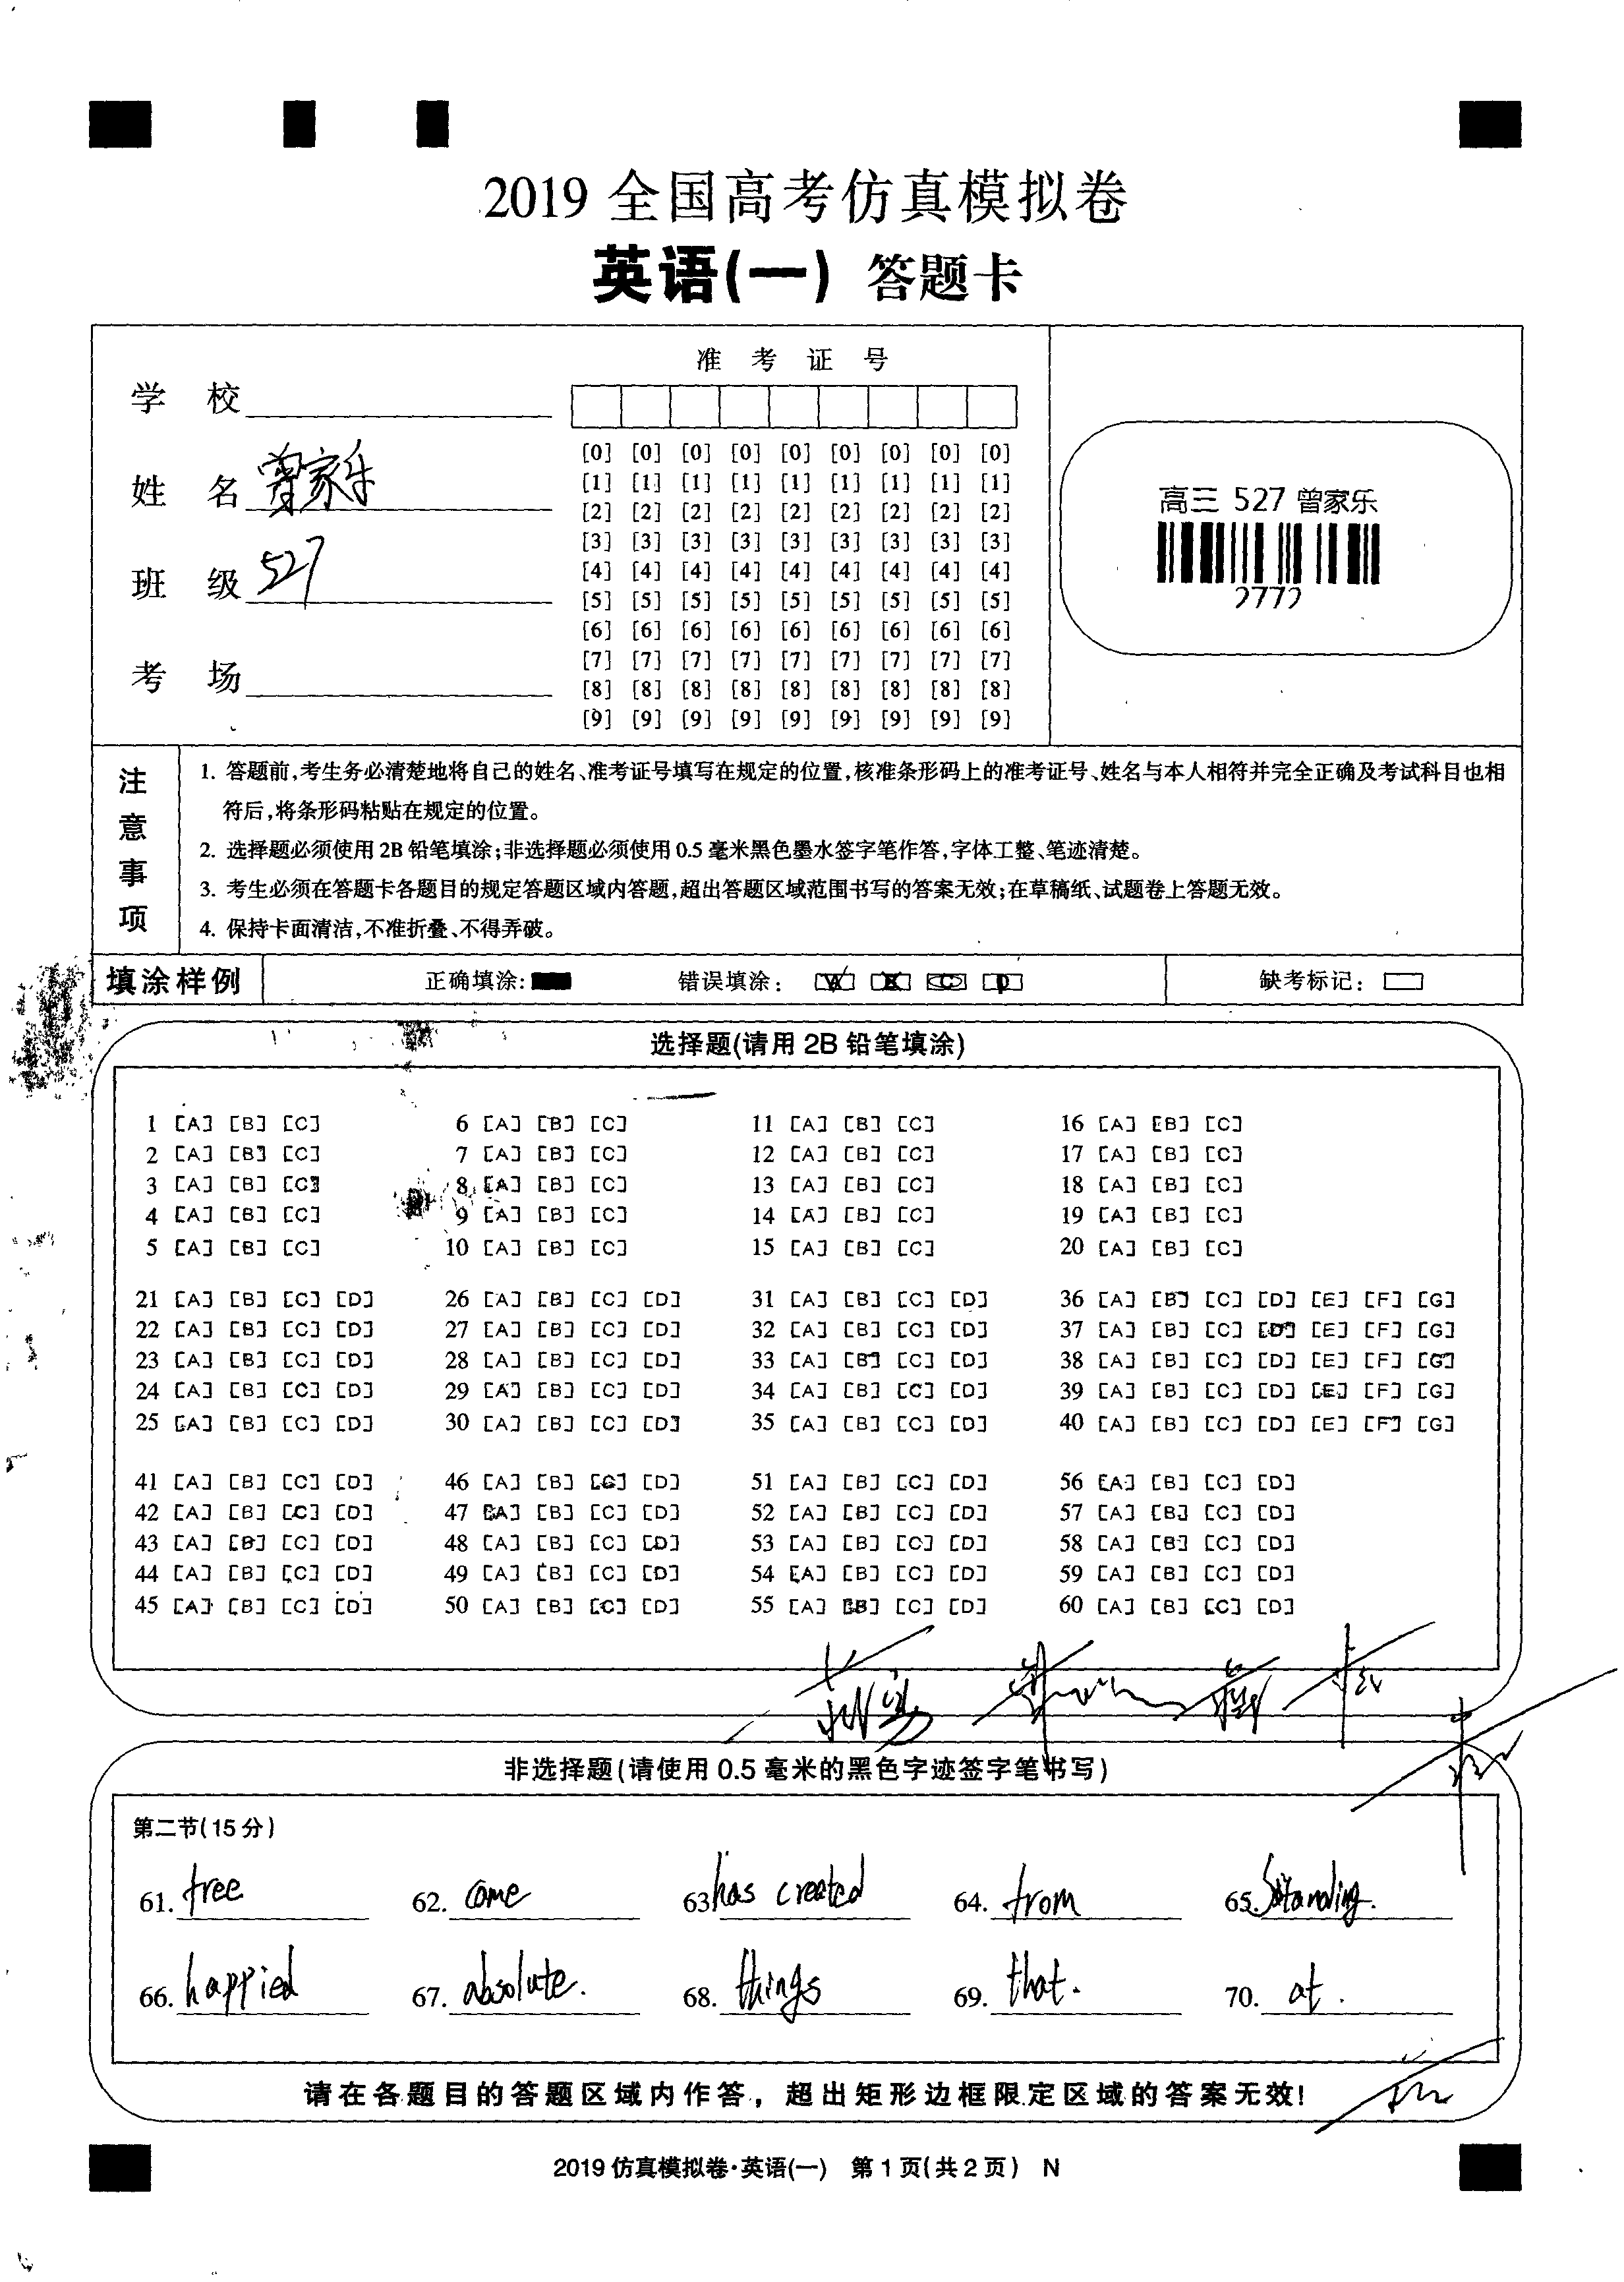 2019 全国高考仿真模拟卷
英语(一) 答题卡
学 校
姓 名 曾家乐
班 级 527
考 场
准 考 证 号
[0] [0] [0] [0] [0] [0] [0] [0] [0]
[1] [1] [1] [1] [1] [1] [1] [1] [1]
[2] [2] [2] [2] [2] [2] [2] [2] [2]
[3] [3] [3] [3] [3] [3] [3] [3] [3]
[4] [4] [4] [4] [4] [4] [4] [4] [4]
[5] [5] [5] [5] [5] [5] [5] [5] [5]
[6] [6] [6] [6] [6] [6] [6] [6] [6]
[7] [7] [7] [7] [7] [7] [7] [7] [7]
[8] [8] [8] [8] [8] [8] [8] [8] [8]
[9] [9] [9] [9] [9] [9] [9] [9] [9]
高三 527 曾家乐
2772
注意事项
1. 答题前,考生务必清楚地将自己的姓名、准考证号填写在规定的位置,核准条形码上的准考证号、姓名与本人相符并完全正确及考试科目也相
符后,将条形码粘贴在规定的位置。
2. 选择题必须使用2B铅笔填涂;非选择题必须使用0.5毫米黑色墨水签字笔作答,字体工整、笔迹清楚。
3. 考生必须在答题卡各题目的规定答题区域内答题,超出答题区域范围书写的答案无效;在草稿纸、试题卷上答题无效。
4. 保持卡面清洁,不准折叠、不得弄破。
填涂样例 正确填涂: 错误填涂: A B C D 缺考标记:
选择题(请用 2B 铅笔填涂)
1 [A] [B] [C] 6 [A] [B] [C] 11 [A] [B] [C] 16 [A] [B] [C]
2 [A] [B] [C] 7 [A] [B] [C] 12 [A] [B] [C] 17 [A] [B] [C]
3 [A] [B] [C] 8 [A] [B] [C] 13 [A] [B] [C] 18 [A] [B] [C]
4 [A] [B] [C] 9 [A] [B] [C] 14 [A] [B] [C] 19 [A] [B] [C]
5 [A] [B] [C] 10 [A] [B] [C] 15 [A] [B] [C] 20 [A] [B] [C]
21 [A] [B] [C] [D] 26 [A] [B] [C] [D] 31 [A] [B] [C] [D] 36 [A] [B] [C] [D] [E] [F] [G]
22 [A] [B] [C] [D] 27 [A] [B] [C] [D] 32 [A] [B] [C] [D] 37 [A] [B] [C] [D] [E] [F] [G]
23 [A] [B] [C] [D] 28 [A] [B] [C] [D] 33 [A] [B] [C] [D] 38 [A] [B] [C] [D] [E] [F] [G]
24 [A] [B] [C] [D] 29 [A] [B] [C] [D] 34 [A] [B] [C] [D] 39 [A] [B] [C] [D] [E] [F] [G]
25 [A] [B] [C] [D] 30 [A] [B] [C] [D] 35 [A] [B] [C] [D] 40 [A] [B] [C] [D] [E] [F] [G]
41 [A] [B] [C] [D] 46 [A] [B] [C] [D] 51 [A] [B] [C] [D] 56 [A] [B] [C] [D]
42 [A] [B] [C] [D] 47 [A] [B] [C] [D] 52 [A] [B] [C] [D] 57 [A] [B] [C] [D]
43 [A] [B] [C] [D] 48 [A] [B] [C] [D] 53 [A] [B] [C] [D] 58 [A] [B] [C] [D]
44 [A] [B] [C] [D] 49 [A] [B] [C] [D] 54 [A] [B] [C] [D] 59 [A] [B] [C] [D]
45 [A] [B] [C] [D] 50 [A] [B] [C] [D] 55 [A] [B] [C] [D] 60 [A] [B] [C] [D]
非选择题(请使用 0.5 毫米的黑色字迹签字笔书写)
第二节(15分)
61. free 62. come 63. has created 64. from 65. Standing.
66. happied 67. absolute. 68. things 69. that. 70. at.
请在各题目的答题区域内作答，超出矩形边框限定区域的答案无效!
2019 仿真模拟卷·英语(一) 第 1 页(共 2 页) N